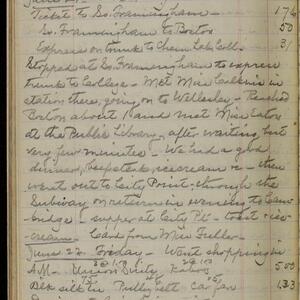 Ticket to So. Framingham 1 76
So. Framingham to Boston 50
Express on trunk to Chem Lab Coll. 31
Stopped at So. Framingham to express
trunk to College - Met Miss Calkins in
station there, going on to Wellesley - Reached
Boston about 1 and met Miss Eaton
at the Public Library, after waiting but
very few minutes - We had a good
dinner, beefsteak, icecream - then
went out to City Point - through the
Subway on return in evening to Cam-
bridge - supper at City Pt -
cream. Card from Miss Fuller.
June 22. Friday - Went shopping in
A.M. - 5 00
Blk silk Car fare 1 33